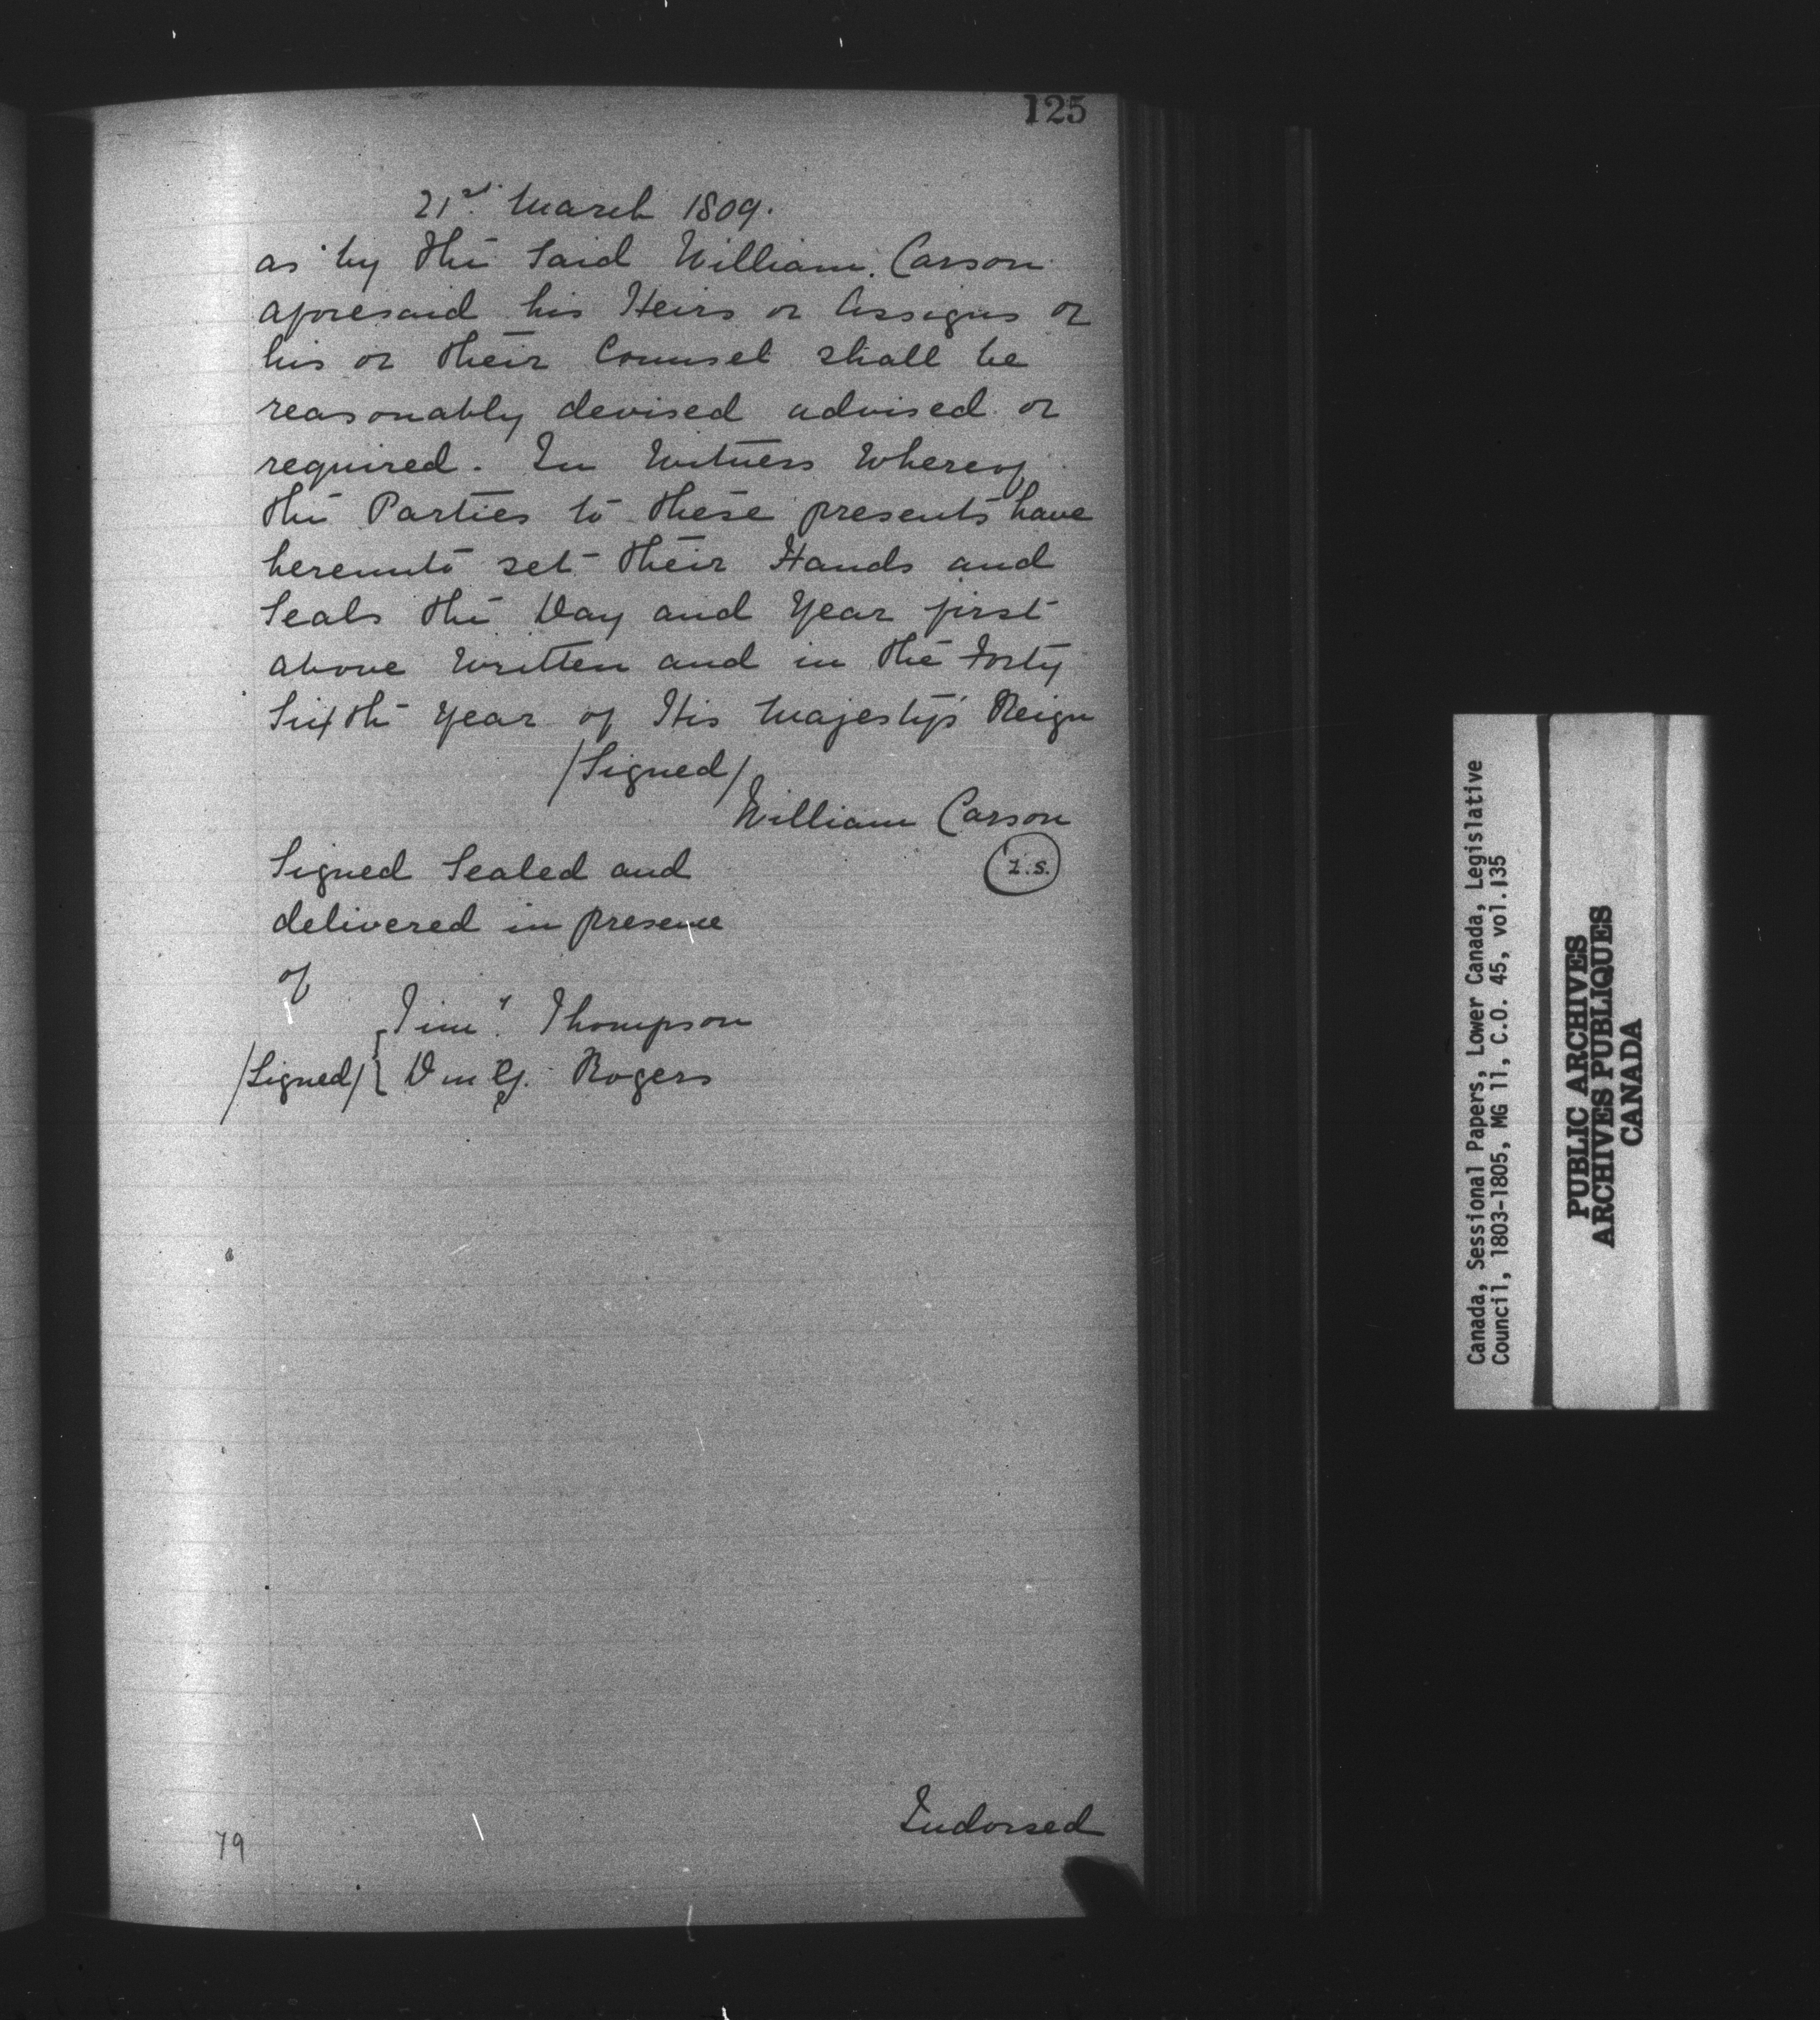 125
21st March 1809.
as by the said William Carson
aforesaid his Heirs or Assigns or
his or their Counsel shall be
reasonably devised advised or
required. In Witness Whereof
the Parties to these presents have
hereunto set their Hands and
Seals the Day and Year first
above Written and in the Forty
Sixth Year of His Majesty's Reign
/Signed/
William Carson
L.S.
Signed Sealed and
delivered in presence
of
Timy. Thompson
/Signed/ { Rogers
Endorsed
79
Canada, Sessional Papers, Lower Canada, Legislative
Council, 1803-1805, MG 11, C.O. 45, vol.135
PUBLIC ARCHIVES
ARCHIVES PUBLIQUES
CANADA